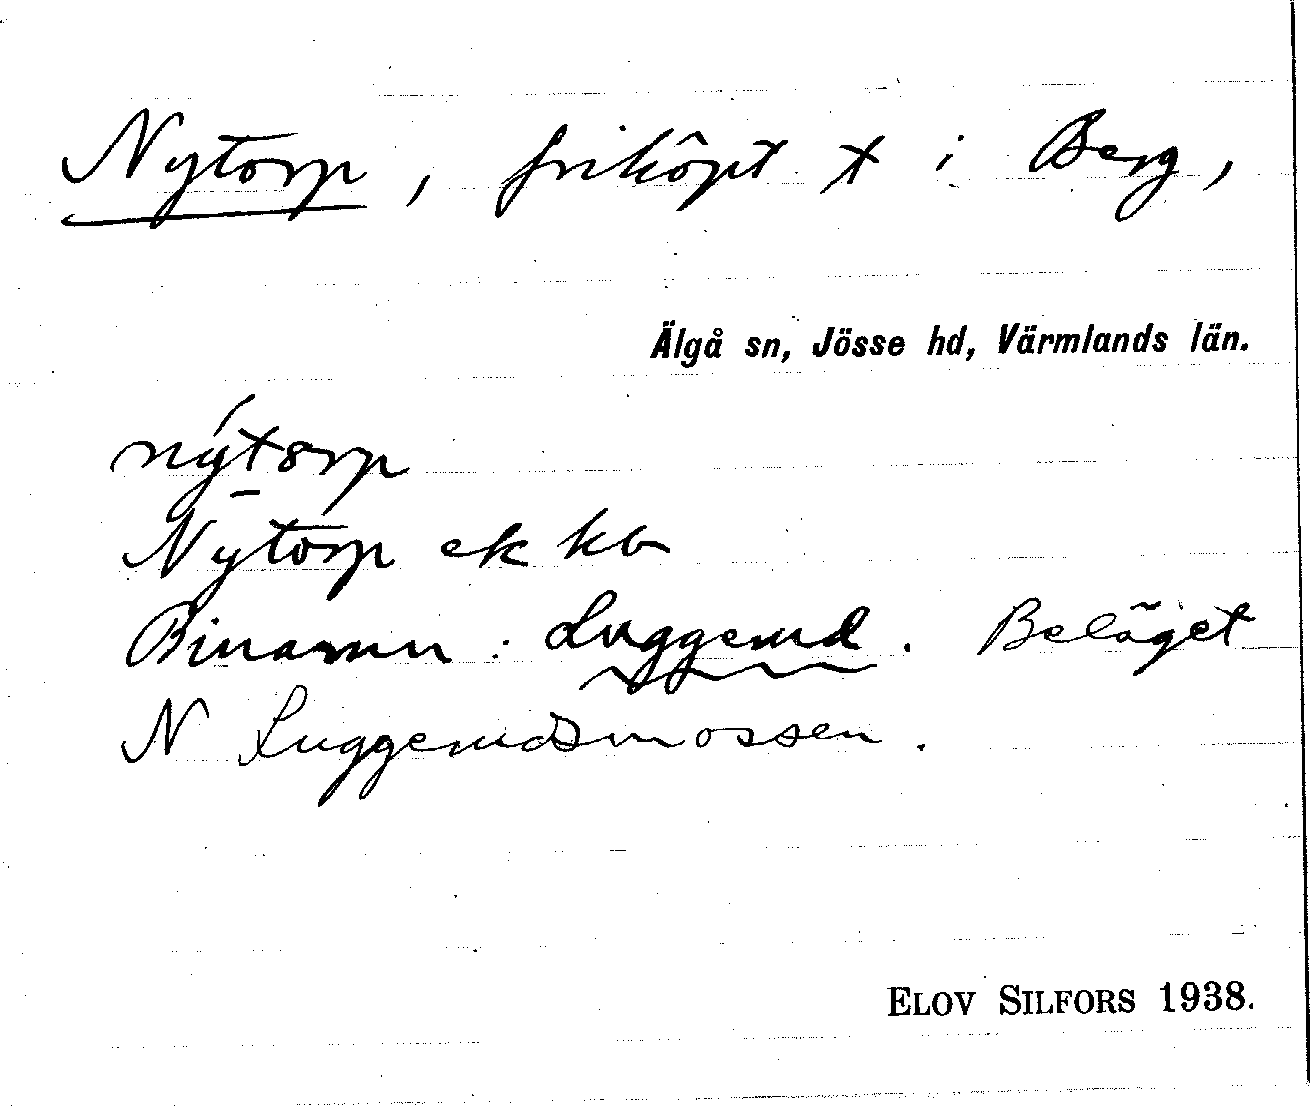 Nytorp, friköpt t i Berg,
Älgå sn, Jösse hd, Värmlands län.
nýtorp
Nytorp ek kb
Binamn: Luggerud. Beläget
N Luggerudsmossen.
ELOV SILFORS 1938.